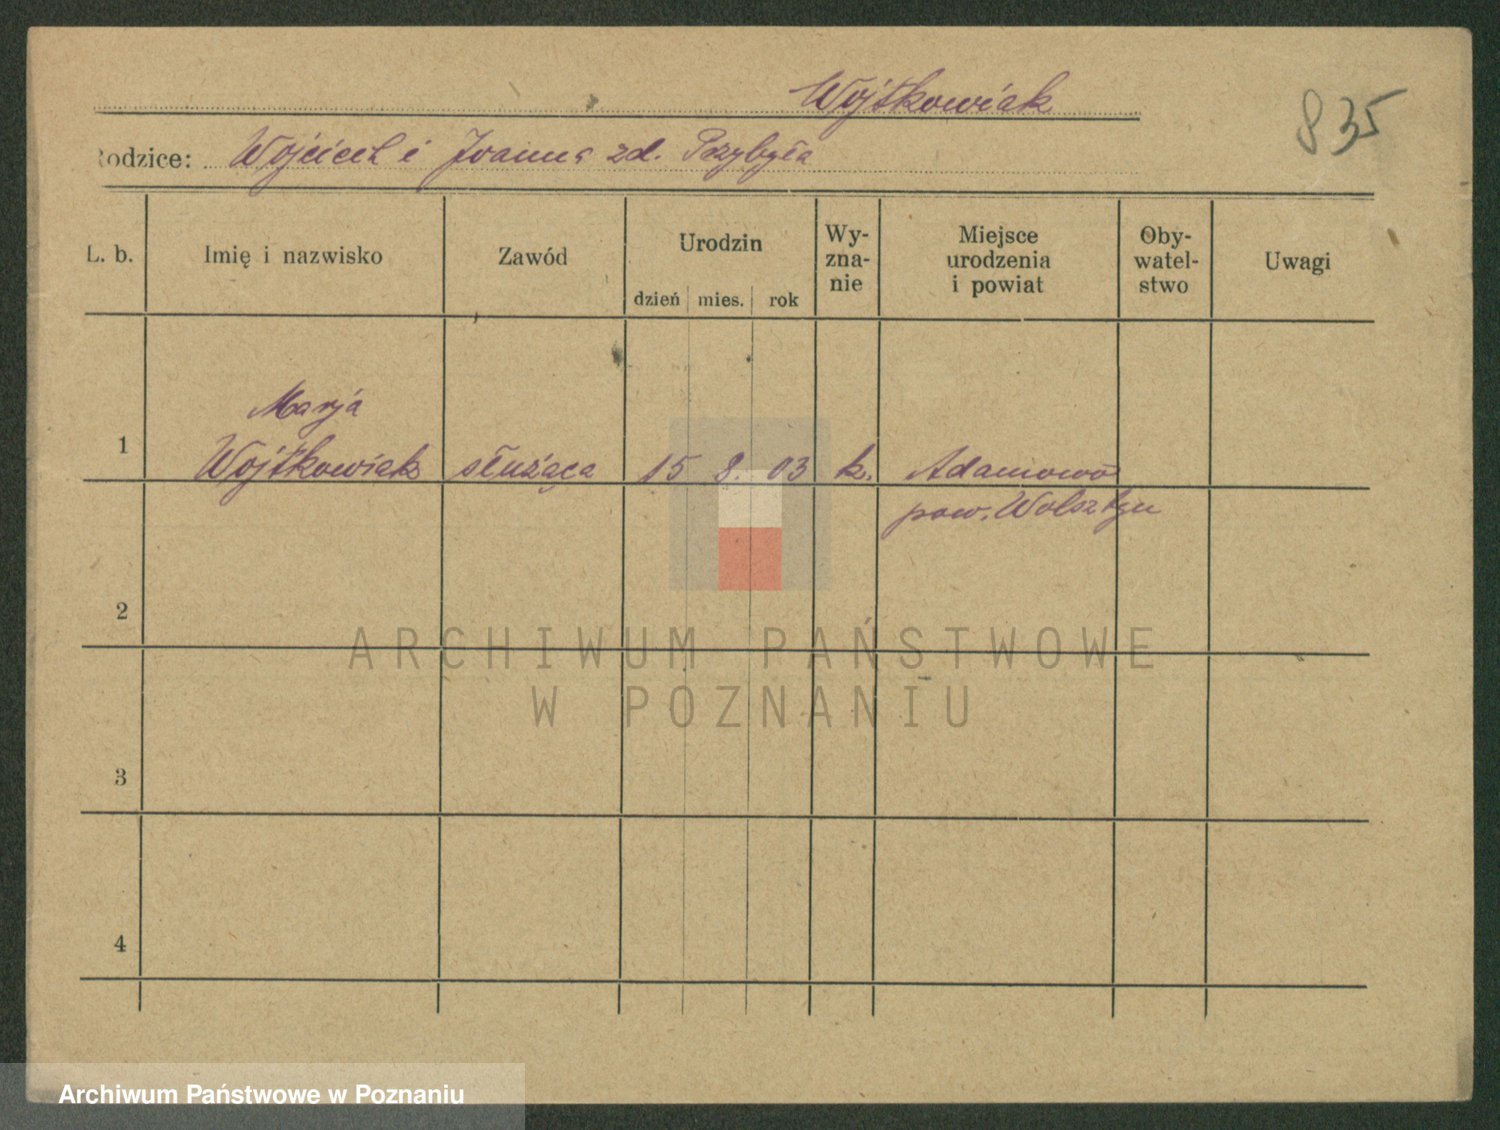 Wojtkowiak
835
Rodzice: Wojciech i Joanna zd. Przybyła
L. b.
Imię i nazwisko
Zawód
Urodzin
dzień mies. rok
Wy-
zna-
nie
Miejsce
urodzenia
i powiat
Oby-
watel-
stwo
Uwagi
Marja
1 Wojtkowiak służąca 15 8. 03 k. Adamowo
pow. Wolsztyn
2
3
4
ARCHIWUM PAŃSTWOWE
W POZNANIU
Archiwum Państwowe w Poznaniu